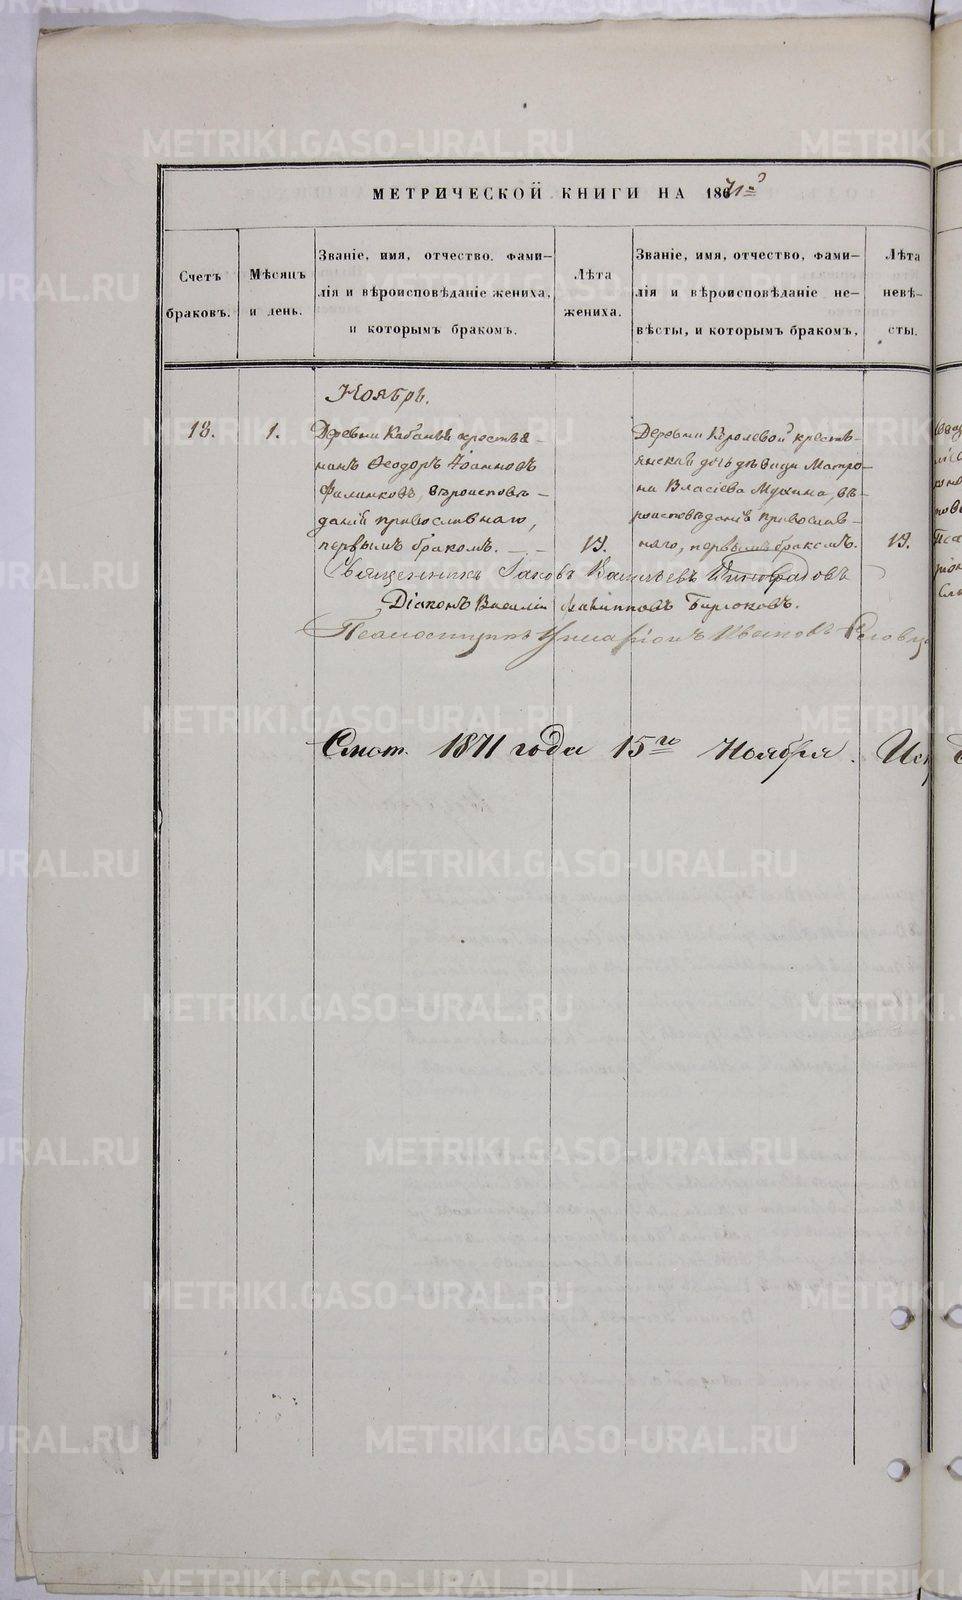 METRIKI.GASO-URAL.RU
МЕТРИЧЕСКОЙ КНИГИ НА 1871 г
Счетъ браковъ.
Мѣсяцъ и день.
Званіе, имя, отчество, фами-
лія и вѣроисповѣданіе жениха,
и которымъ бракомъ.
Лѣта
жениха.
Званіе, имя, отчество, фами-
лія и вѣроисповѣданіе не-
вѣсты, и которымъ бракомъ,
Лѣта
невѣ-
сты.
Ноябрь.
13.
1.
Деревни Кабаньи крестья-
нинъ Ѳеодоръ Іоанновъ
Филинковъ, вѣроисповѣ-
данія православнаго,
первымъ бракомъ.
19.
Деревни Королевой кресть-
янская дочь дѣвица Матро-
на Власіева Мухина, вѣ-
роисповѣданія православ-
наго, первымъ бракомъ.
19.
Священникъ Іаковъ Васильевъ Виноградовъ
Діаконъ Василій Филипповъ Бирюковъ.
Псаломщикъ Ивановъ
Смот. 1871 года 15го Ноября.